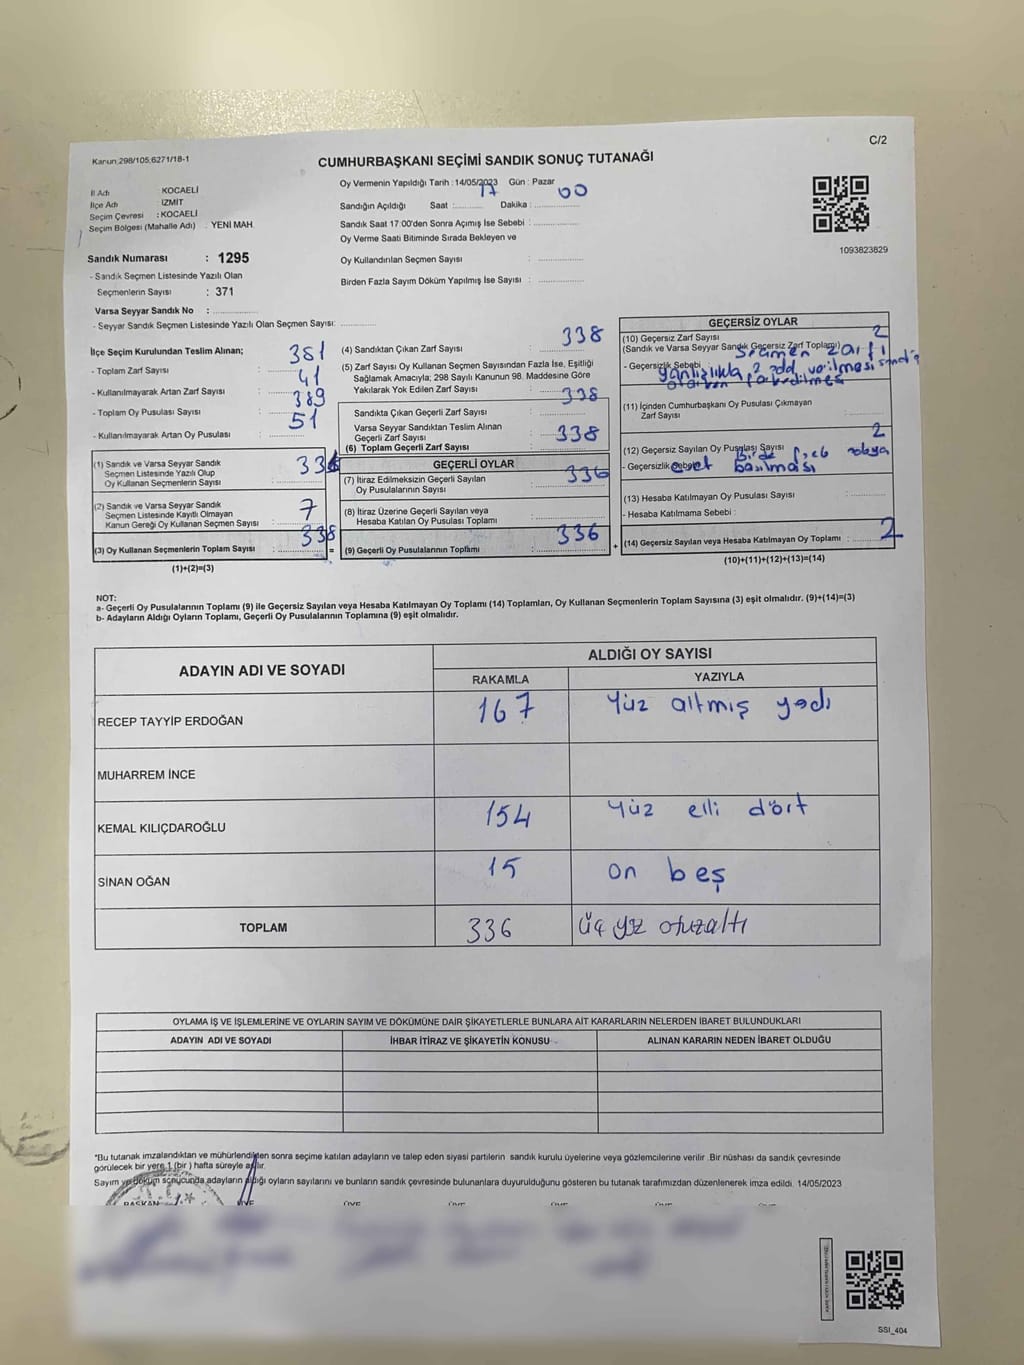 C/2
Kanun 298/105,6271/18-1
CUMHURBAŞKANI SEÇİMİ SANDIK SONUÇ TUTANAĞI
İl Adı : KOCAELİ
İlçe Adı : İZMİT
Seçim Çevresi : KOCAELİ
Seçim Bölgesi (Mahalle Adı) : YENİ MAH.
Oy Vermenin Yapıldığı Tarih : 14/05/2023 Gün : Pazar
Sandığın Açıldığı Saat : 17 Dakika : 00
Sandık Saat 17:00'den Sonra Açımış İse Sebebi :
Oy Verme Saati Bitiminde Sırada Bekleyen ve
Oy Kullandırılan Seçmen Sayısı :
Birden Fazla Sayım Döküm Yapılmış İse Sayısı :
1093823829
Sandık Numarası : 1295
- Sandık Seçmen Listesinde Yazılı Olan
Seçmenlerin Sayısı : 371
Varsa Seyyar Sandık No :
- Seyyar Sandık Seçmen Listesinde Yazılı Olan Seçmen Sayısı:
İlçe Seçim Kurulundan Teslim Alınan;
- Toplam Zarf Sayısı : 381
- Kullanılmayarak Artan Zarf Sayısı : 41
- Toplam Oy Pusulası Sayısı : 389
- Kullanılmayarak Artan Oy Pusulası : 51
(1) Sandık ve Varsa Seyyar Sandık
Seçmen Listesinde Yazılı Olup
Oy Kullanan Seçmenlerin Sayısı :
(2) Sandık ve Varsa Seyyar Sandık
Seçmen Listesinde Kayıtlı Olmayan
Kanun Gereği Oy Kullanan Seçmen Sayısı : 7
(3) Oy Kullanan Seçmenlerin Toplam Sayısı : 338
(1)+(2)=(3)
(4) Sandıktan Çıkan Zarf Sayısı : 338
(5) Zarf Sayısı Oy Kullanan Seçmen Sayısından Fazla İse, Eşitliği
Sağlamak Amacıyla; 298 Sayılı Kanunun 98. Maddesine Göre
Yakılarak Yok Edilen Zarf Sayısı :
Sandıkta Çıkan Geçerli Zarf Sayısı : 338
Varsa Seyyar Sandıktan Teslim Alınan
Geçerli Zarf Sayısı :
(6) Toplam Geçerli Zarf Sayısı : 338
GEÇERLİ OYLAR
(7) İtiraz Edilmeksizin Geçerli Sayılan
Oy Pusulalarının Sayısı : 336
(8) İtiraz Üzerine Geçerli Sayılan veya
Hesaba Katılan Oy Pusulası Toplamı :
(9) Geçerli Oy Pusulalarının Toplamı : 336
GEÇERSİZ OYLAR
(10) Geçersiz Zarf Sayısı : 2
(Sandık ve Varsa Seyyar Sandık Geçersiz Zarf Toplamı)
- Geçersizlik Sebebi : seçmen zarfı
yanlışlıkla 2 add verilmesi
(11) İçinden Cumhurbaşkanı Oy Pusulası Çıkmayan
Zarf Sayısı :
(12) Geçersiz Sayılan Oy Pusulası Sayısı : 2
- Geçersizlik Sebebi : evet basılması
(13) Hesaba Katılmayan Oy Pusulası Sayısı :
- Hesaba Katılmama Sebebi :
(14) Geçersiz Sayılan veya Hesaba Katılmayan Oy Toplamı : 2
(10)+(11)+(12)+(13)=(14)
NOT:
a- Geçerli Oy Pusulalarının Toplamı (9) ile Geçersiz Sayılan veya Hesaba Katılmayan Oy Toplamı (14) Toplamları, Oy Kullanan Seçmenlerin Toplam Sayısına (3) eşit olmalıdır. (9)+(14)=(3)
b- Adayların Aldığı Oyların Toplamı, Geçerli Oy Pusulalarının Toplamına (9) eşit olmalıdır.
ADAYIN ADI VE SOYADI
ALDIĞI OY SAYISI
RAKAMLA YAZIYLA
RECEP TAYYİP ERDOĞAN 167 Yüz altmış yedi
MUHARREM İNCE
KEMAL KILIÇDAROĞLU 154 Yüz elli dört
SİNAN OĞAN 15 on beş
TOPLAM 336 üç yz otuzaltı
OYLAMA İŞ VE İŞLEMLERİNE VE OYLARIN SAYIM VE DÖKÜMÜNE DAİR ŞİKAYETLERLE BUNLARA AİT KARARLARIN NELERDEN İBARET BULUNDUKLARI
ADAYIN ADI VE SOYADI İHBAR İTİRAZ VE ŞİKAYETİN KONUSU ALINAN KARARIN NEDEN İBARET OLDUĞU
"Bu tutanak imzalandıktan ve mühürlendikten sonra seçime katılan adayların ve talep eden siyasi partilerin sandık kurulu üyelerine veya gözlemcilerine verilir .Bir nüshası da sandık çevresinde
görülecek bir yere 1 (bir ) hafta süreyle asılır.
Sayım ve döküm sonucunda adayların aldığı oyların sayılarını ve bunların sandık çevresinde bulunanlara duyurulduğunu gösteren bu tutanak tarafımızdan düzenlenerek imza edildi. 14/05/2023
BAŞKAN ÜYE ÜYE ÜYE ÜYE ÜYE ÜYE
SSI_404